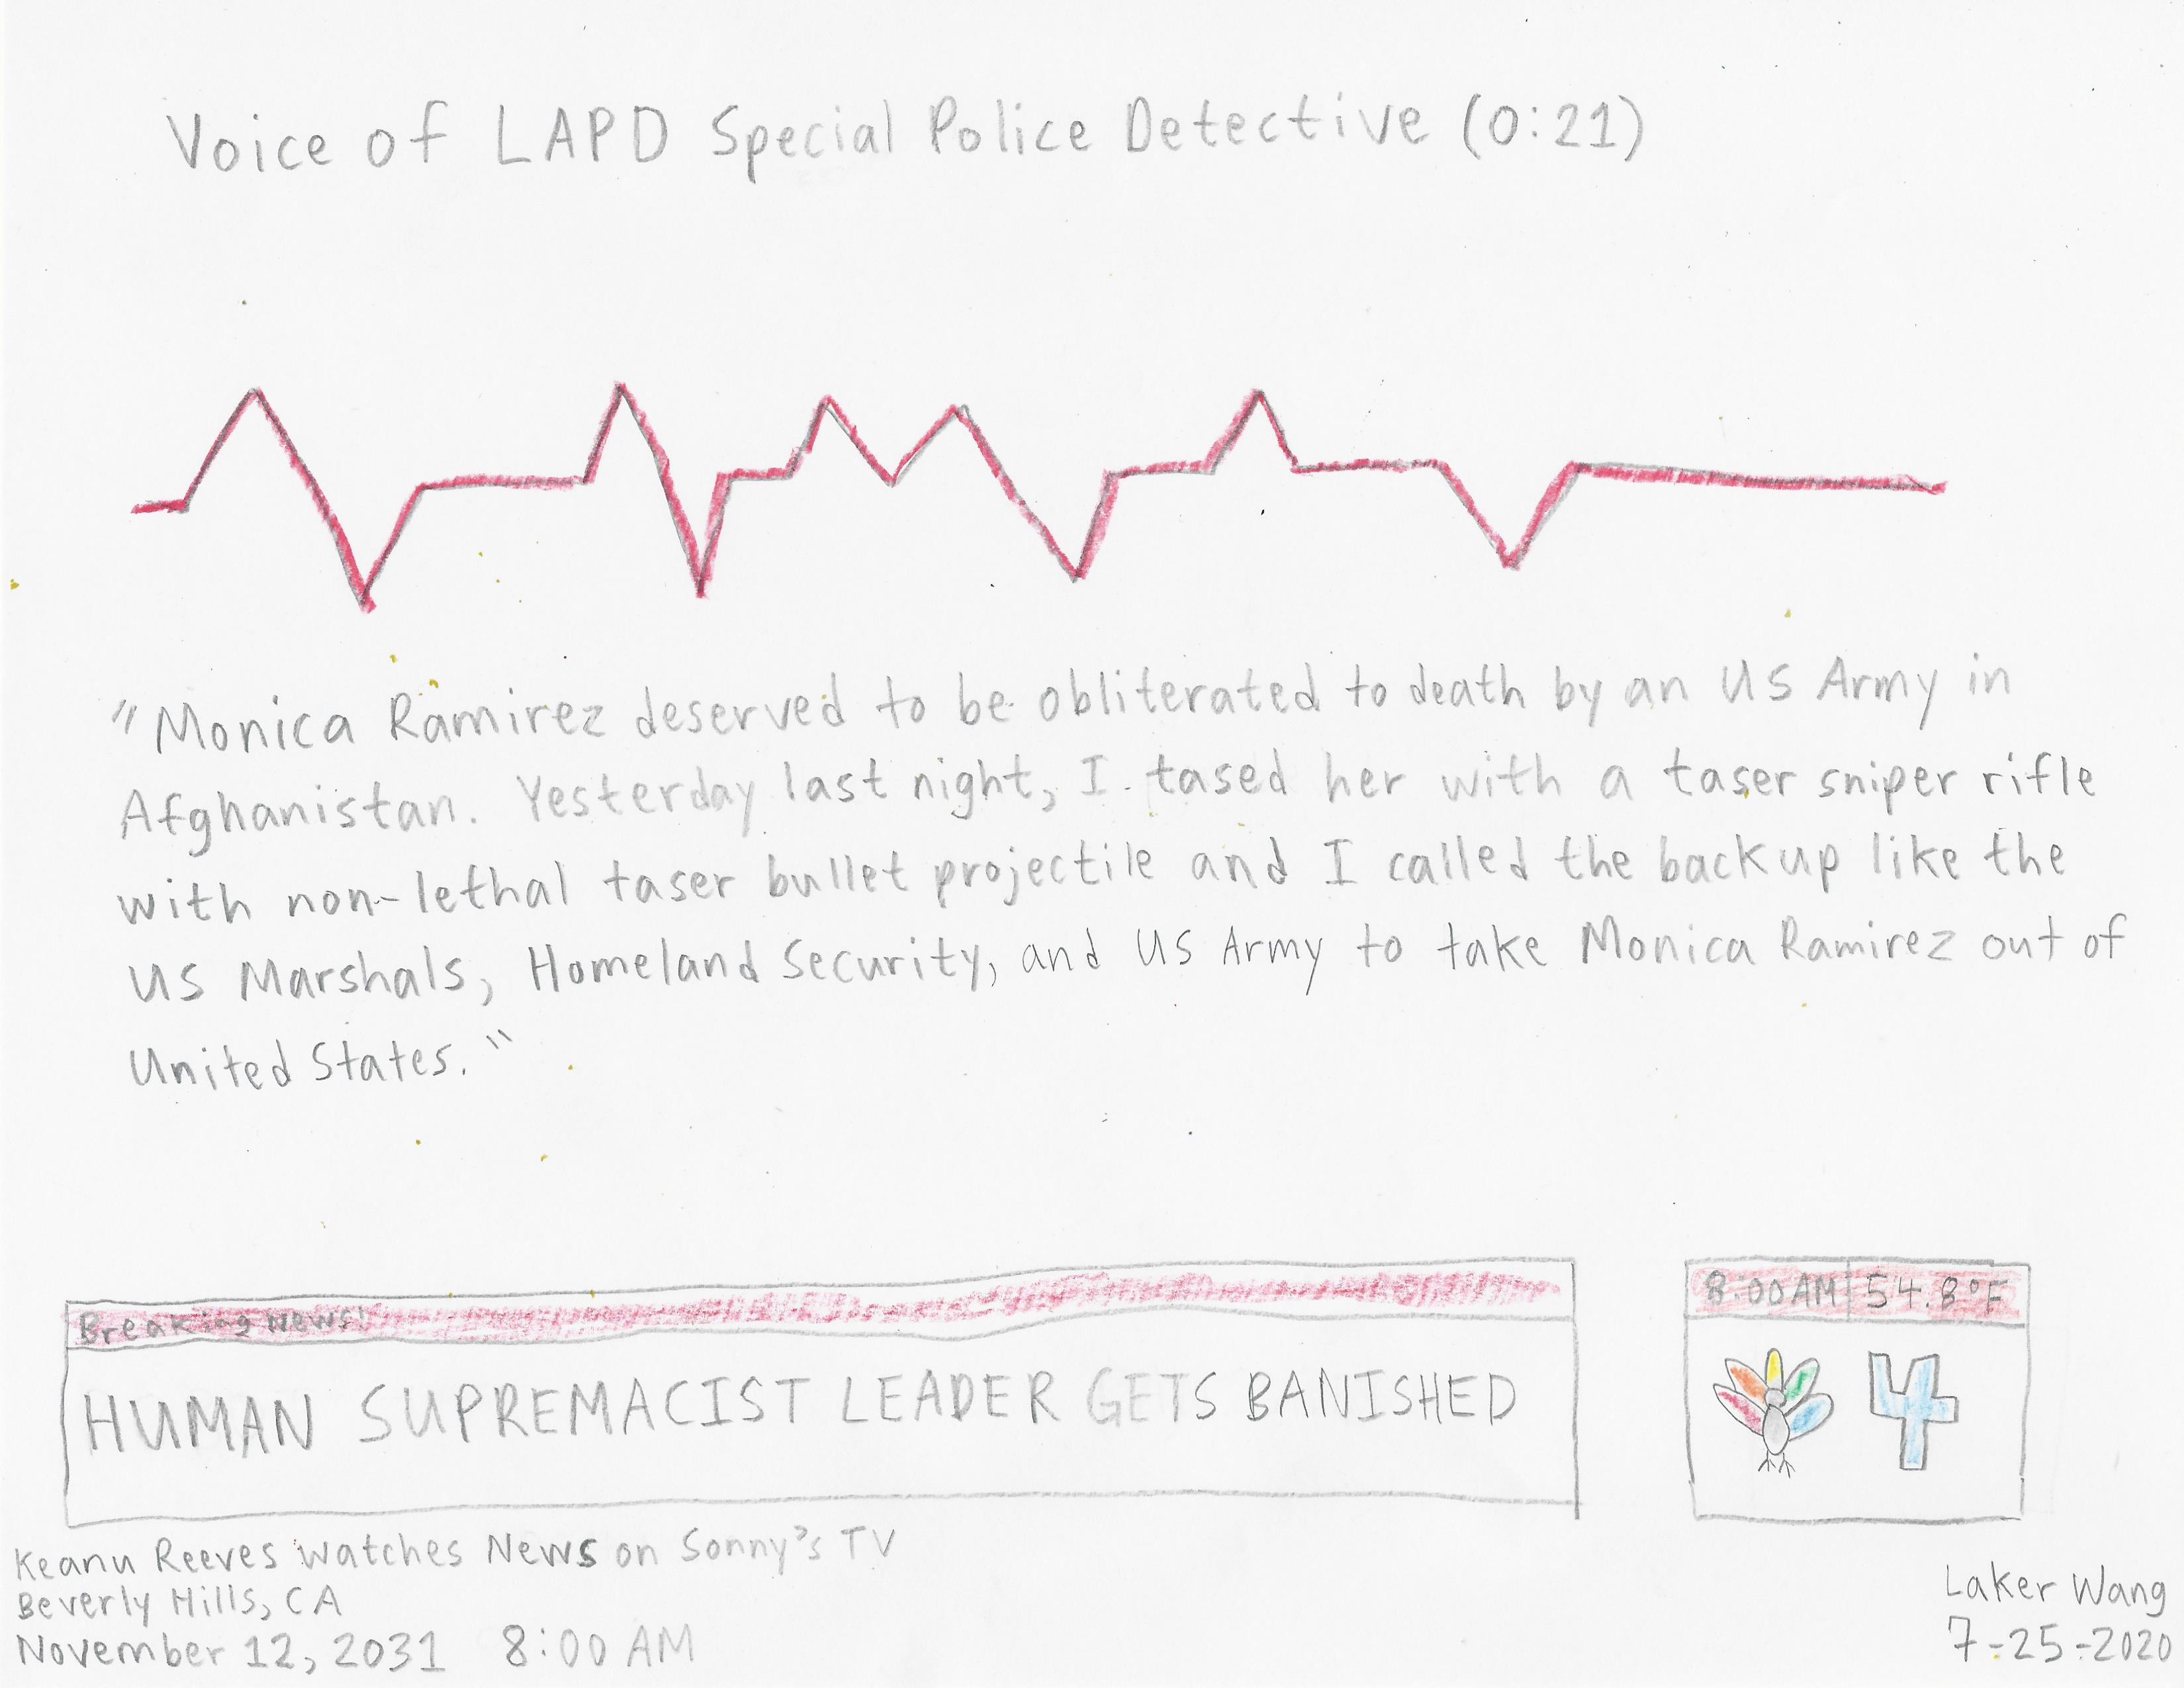 Voice of LAPD Special Police Detective (0:21)
"Monica Ramirez deserved to be obliterated to death by an US Army in
Afghanistan. Yesterday last night, I tased her with a taser sniper rifle
with non-lethal taser bullet projectile and I called the backup like the
US Marshals, Homeland Security, and US Army to take Monica Ramirez out of
United States."
Breaking News!
HUMAN SUPREMACIST LEADER GETS BANISHED
8:00 AM 54.8°F
4
Keanu Reeves watches News on Sonny's TV
Beverly Hills, CA
November 12, 2031 8:00 AM
Laker Wang
7-25-2020